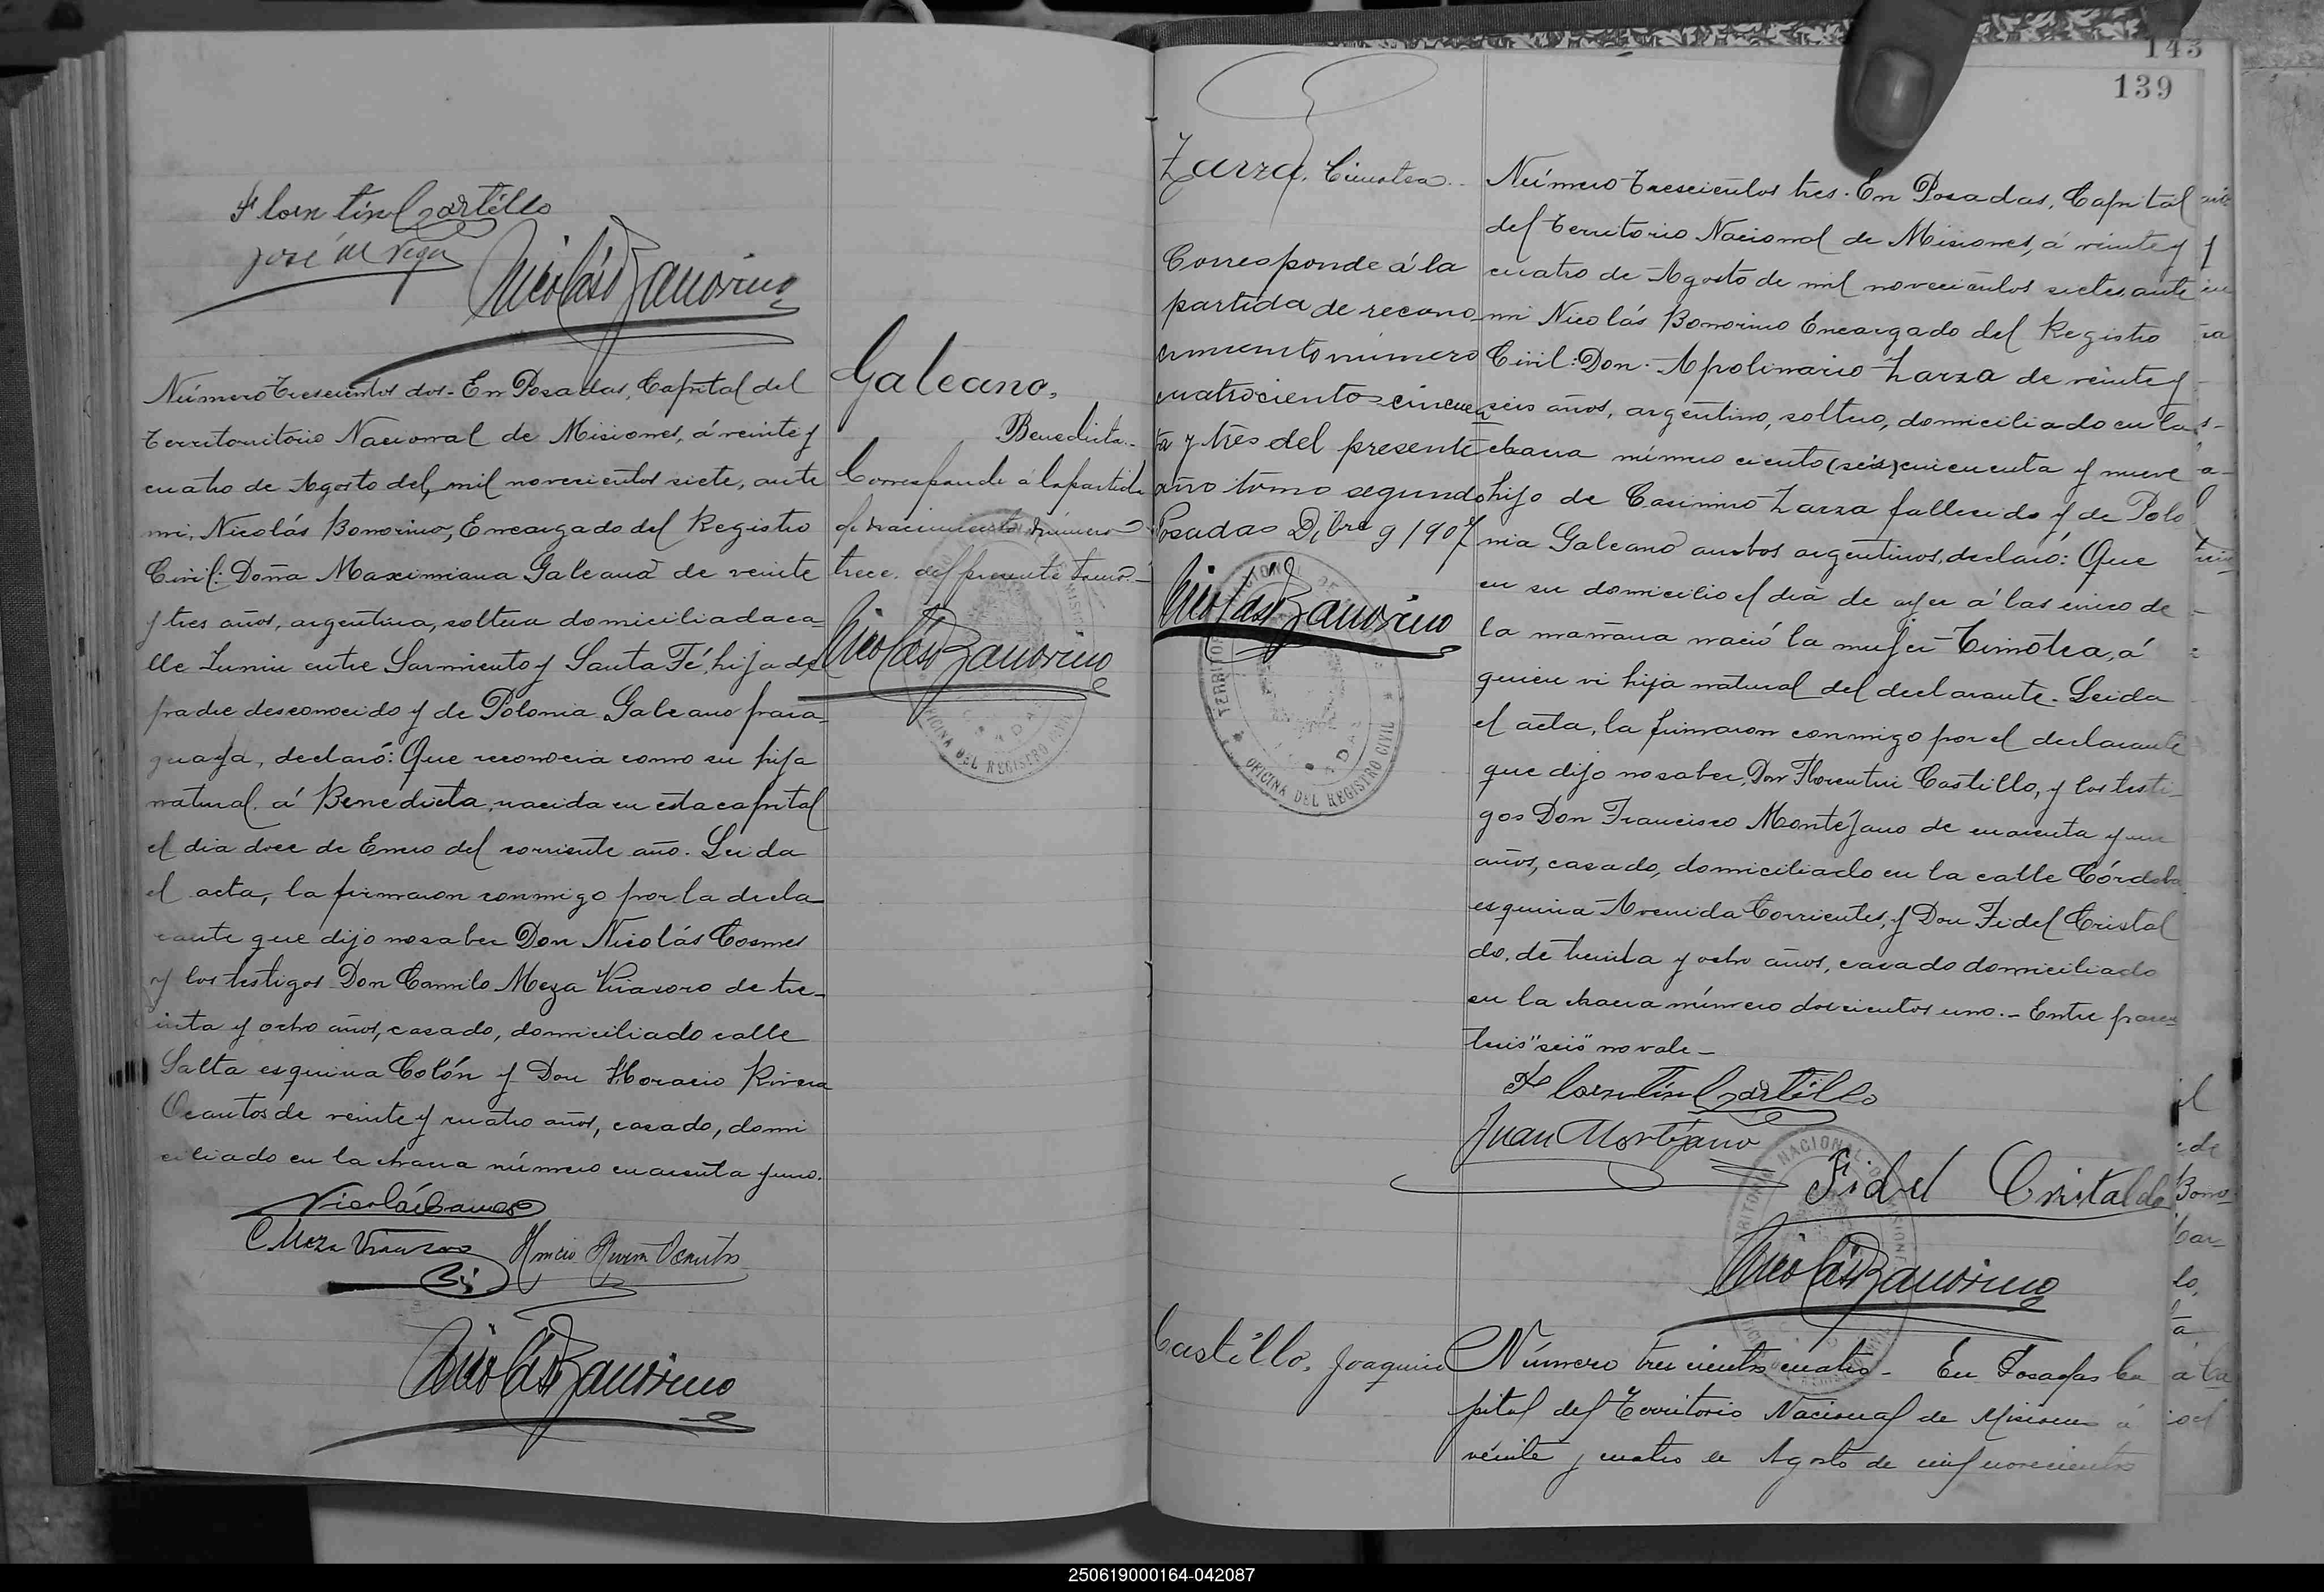 Florentin Castillo
José M Vega
Nicolás Bonorino
Número trescientos dos - En Posadas, Capital del
Territoritorio Nacional de Misiones, á veinte y
cuatro de Agosto del mil novecientos siete, ante
mi, Nicolás Bonorino, Encargado del Registro
Civil: Doña Maximiana Galeano de veinte
y tres años, argentina, soltera domiciliada ca=
lle Junin entre Sarmiento y Santa Fé, hija de
padre desconocido y de Polonia Galeano para-
guaya, declaró: Que reconocia como su hija
natural á Benedicta, nacida en esta capital
el dia doce de Enero del corriente año. Leida
el acta, la firmaron conmigo por la decla
rante que dijo no saber Don Nicolás Cosmes
y los testigos Don Camilo Meza Virasoro de tre-
inta y ocho años, casado, domiciliado calle
Salta esquina Colón y Don Horacio Rivera
Ocantos de veinte y cuatro años, casado, domi
ciliado en la chacra número cuarenta y uno.
C Meza Virasoro
Horacio Rivera Ocantos
Nicolás Bonorino
Galeano,
Benedicta.-
Corresponde á la partida
de nacimiento número
trece del presente tomo.-
Nicolás Bonorino
OFICINA DEL REGISTRO CIVIL
143
139
Zarza, Timotea.-
Corresponde á la
partida de recono
cimiento número
cuatrociento cincuen
ta y tres del presente
año tomo segundo
Posadas Dibre 9/907
Nicolás Bonorino
OFICINA DEL REGISTRO CIVIL
Número trescientos tres. En Posadas, Capital
del Territorio Nacional de Misiones, á veinte y
cuatro de Agosto de mil novecientos siete, ante
mi Nicolás Bonorino Encargado del Registro
Civil: Don Apolinario Zarza de veinte y
seis años, argentino, soltero, domiciliado en la
chacra número ciento (seis) cincuenta y nueve
hijo de Casimiro Zarza fallecido y de Polo
nia Galeano ambos argentinos, declaró: Que
en su domicilio el dia de ayer á las cinco de
la mañana nació la mujer Timotea, á
quien vi hija natural del declarante. Leida
el acta, la firmaron conmigo por el declarante
que dijo no saber, Don Florentin Castillo, y los testi-
gos Don Francisco Montejano de cuarenta y un
años, casado, domiciliado en la calle Córdoba
esquina Avenida Corrientes, y Don Fidel Cristal
do, de treinta y ocho años, casado domiciliado
en la chacra número doscientos uno.- Entre paren
tesis "seis" no vale-
Florentin Castillo
Juan Montejano
Fidel Cristaldo
Nicolás Bonorino
Castillo, Joaquin
Número trescientos cuatro - En Posadas Ca
pital del Territorio Nacional de Misiones á
veinte y cuatro de Agosto de mil novecientos
250619000164-042087